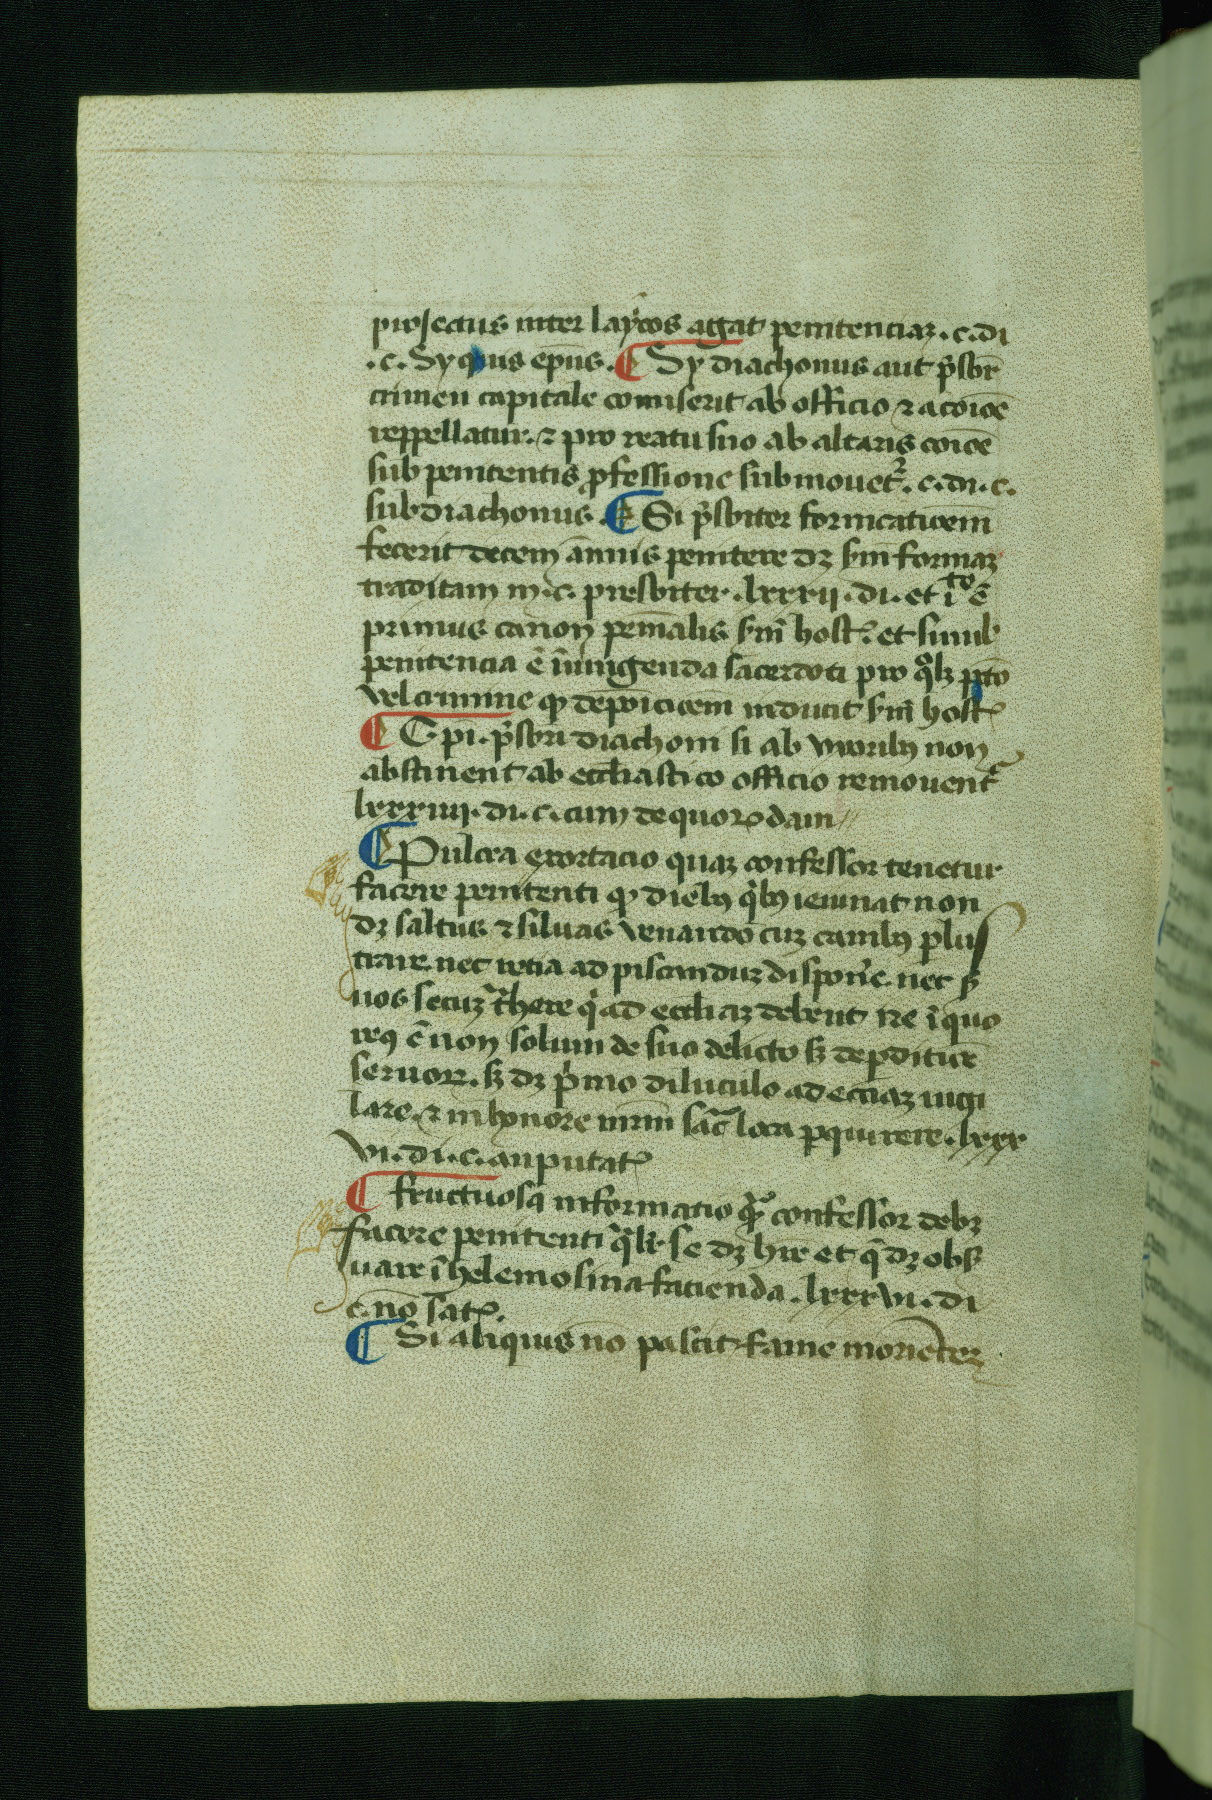 proiectus inter laycos agat penitenciaꝫ. c. di
.c. Sy quis ep̄us. ¶ Sy diachonus aut p̄sbr̄
crimen capitale comiserit ab officio ⁊ a coīōe
reppellatur. ⁊ pro reatu suo ab altaris coīōe
sub penitentis ꝓfessione submouet᷑. c. di. c.
subdiachonus. ¶ Si p̄sbiter fornicatiōem
fecerit decem annis penitere dꝫ scd̄m formaꝫ
traditam in. c. presbiter. lxxxij. di. et iō ē
primus canon penn̄alis scd̄m host. et simil̄
penitencia ē iniūgenda sacerdoti pro qͦlꝫ pctō
vel crimine qꝫ depōiciōem inducit scd̄m host.
¶ Ep̄i. p̄sbr̄i diachoni si ab vxoribꝫ non
abstinent ab eccl̄iastico officio remouent᷑
lxxxiiij. di. c. cum de quoꝝdam
¶ Pulcra exortacio quaꝫ confessor tenetur
facere penitenti qꝫ diebꝫ qͥbꝫ ieiunat non
dꝫ saltus ⁊ siluas venando cuꝫ canibꝫ plus
trare. nec retia ad piscanduꝫ dispon̄e. nec s̄
uos secuꝫ tͣhere qͥ ad eccl̄iaꝫ debent Ne ī quo
reꝰ ē non solum de suo delicto sꝫ de ꝑditiōe
seruoꝝ. sꝫ dꝫ pͥmo diluculo ad eccl̄iaꝫ uigi
lare. ⁊ in honore
sāc̄ loca ꝑquirere. lxxx
vi. di. c. an putat᷑
¶ fructuosa informatio qm̄ confessor debꝫ
facere penitenti qͣlr̄ se dꝫ hr̄e et qͥ dꝫ obs̄
uare ī helemosina facienda. lxxxvi. di
c. nō sat᷑.
¶ Si aliquis nō pascit fame morienteꝫ